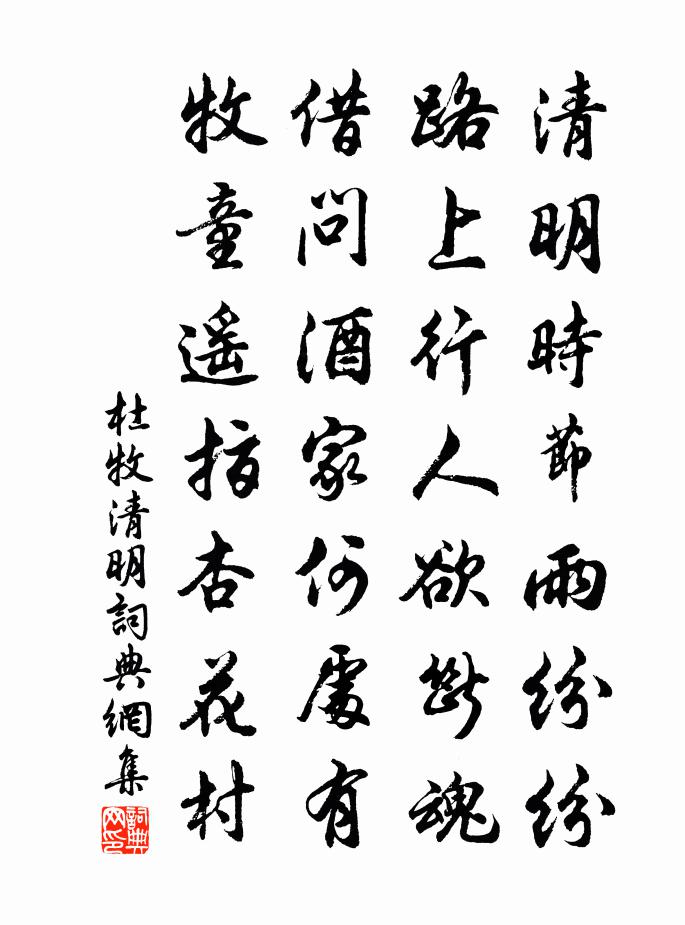 清明時節雨紛紛
路上行人欲斷魂
借問酒家何處有
牧童遥指杏花村
杜牧清明詞典網集
詞典网印